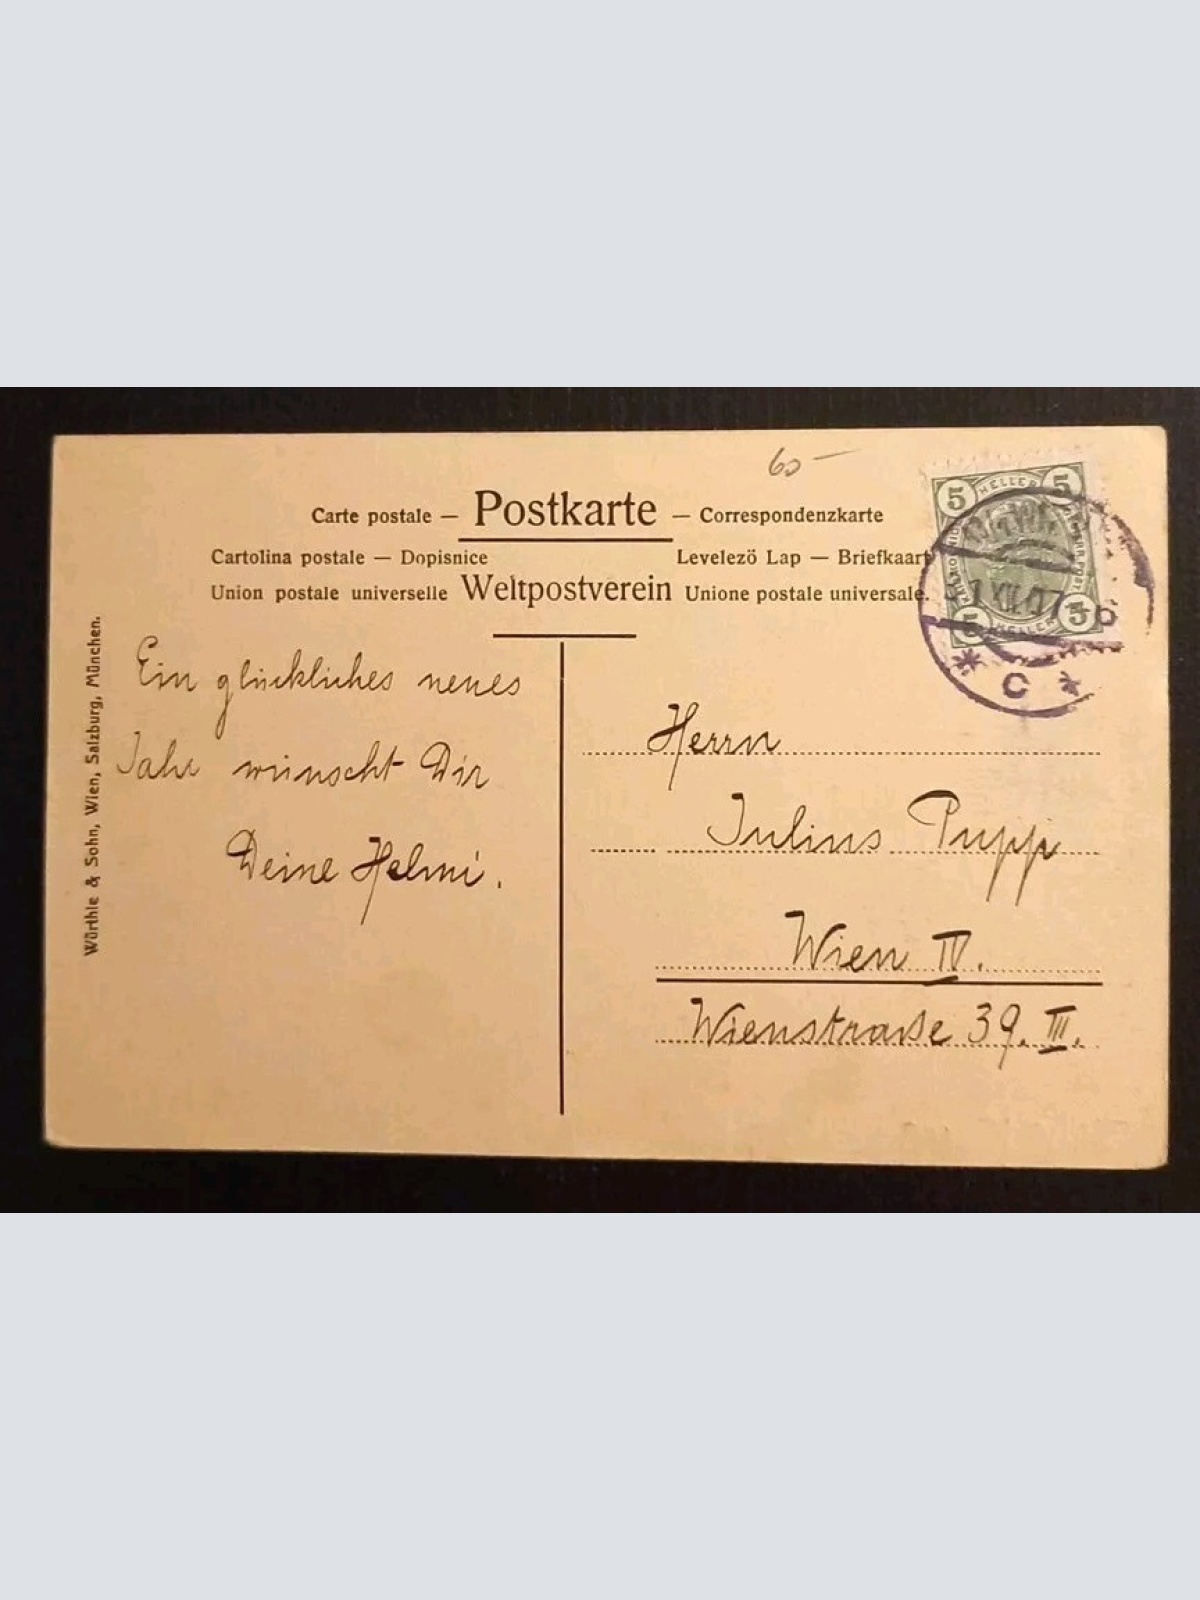 60 —
Carte postale — Postkarte — Correspondenzkarte
Cartolina postale — Dopisnice Levelezö Lap — Briefkaart
Union postale universelle Weltpostverein Unione postale universale.
5 HELLER 5
5 HELLER 5
XII 07
* C *
Würthle & Sohn, Wien, Salzburg, München.
Ein glückliches neues
Jahr wünscht Dir
Deine Helmi.
Herrn
Julius Pupp
Wien IV.
Wienstraße 39. III.